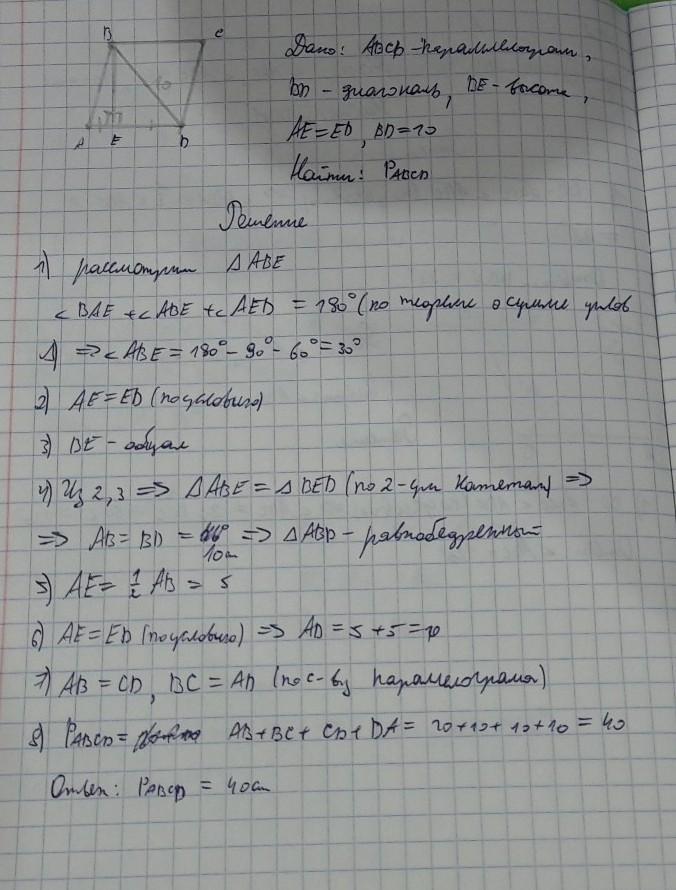 B C
10
A E D
Дано: ABCD - параллелограм,
BD - диагональ, BE - высота,
AE = ED, BD = 10
Найти: PABCD
Решение
1) рассмотрим Δ ABE
< BAE + < ABE + < AED = 180° (по теореме о сумме углов
Δ) => < ABE = 180° - 90° - 60° = 30°
2) AE = ED (по условию)
3) BE - общая
4) Из 2, 3 => Δ ABE = Δ BED (по 2-ум катетам) =>
=> AB = BD = 10см => Δ ABD - равнобедренный
5) AE = 1/2 AB = 5
6) AE = ED (по условию) => AD = 5 + 5 = 10
7) AB = CD, BC = AD (по с-ву параллелограма)
8) PABCD = AB + BC + CD + DA = 10 + 10 + 10 + 10 = 40
Ответ: PABCD = 40см